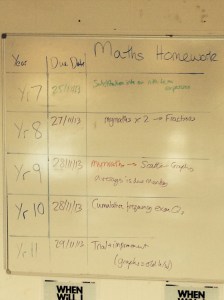 Maths Homework
Year Due Date
Yr 7 25/11/13
Yr 8 27/11/13 mymaths x 2 → Fractions
Yr 9 28/11/13 mymaths → Scatter Graphs
always is due Monday
Yr 10 28/11/13 Cumulative frequency exam Qs
Yr 11 29/11/13 Trial + improvement
WHEN
WILL I
WHEN